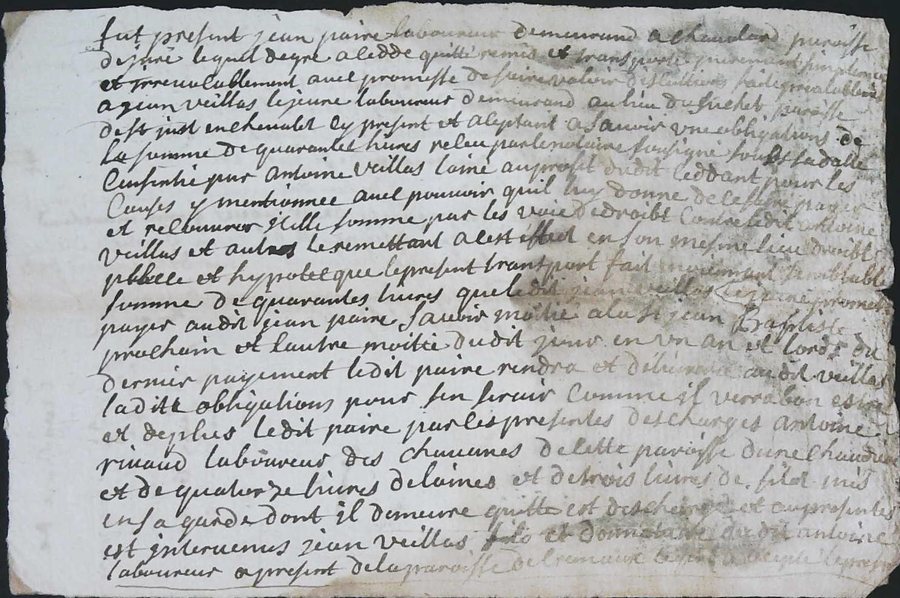 fut present jean paire laboureur demeurand a paroisse
de juré lequel de gre a cedde quitté remis et transporté purement simplement
et Irrevocablement avel promesse de faire valoir
a jean veillas le jeune laboureur demeurand au lieu du suchet paroisse
de st just en chevalet Cy present et aseptant a Savoir une obligations de
la somme de quarantes livres releu par le notaire Sousigné soubs sa datte
Consentie par antoine veillas laine au profit du dit ceddant pour les
Causes y mentionnee avel pouvoir quil luy donne de se faire payer
et relouvrer jcelle somme par les voie de droibt Contre ledit antoine
veillas et autres le remettant a cest effect en son mesme lieu droibt
et hypoteque le present transport fait moiennant semblable
somme de quarantes livres que ledit jean veillas promet
payer au dit jean paire Savoir moitie a la st jean Baptiste
prochain et lautre moitie du dit jour en un an et lords du
dernier payement ledit paire rendra et délivrera au dit veillas
la ditte obligations pour sen servir Comme il verra bon estre
et de plus ledit paire par les presentes descharges antoine
rivaud laboureur des chavanes de cette paroisse dune chaudiere
et de quatorze livres de laines et de trois livres de fild mis
en sa garde dont il demeure quitte est descharge et au presentes
est intervenus jean veillas fils et donnataire du dit antoine
laboureur a present de la paroisse de